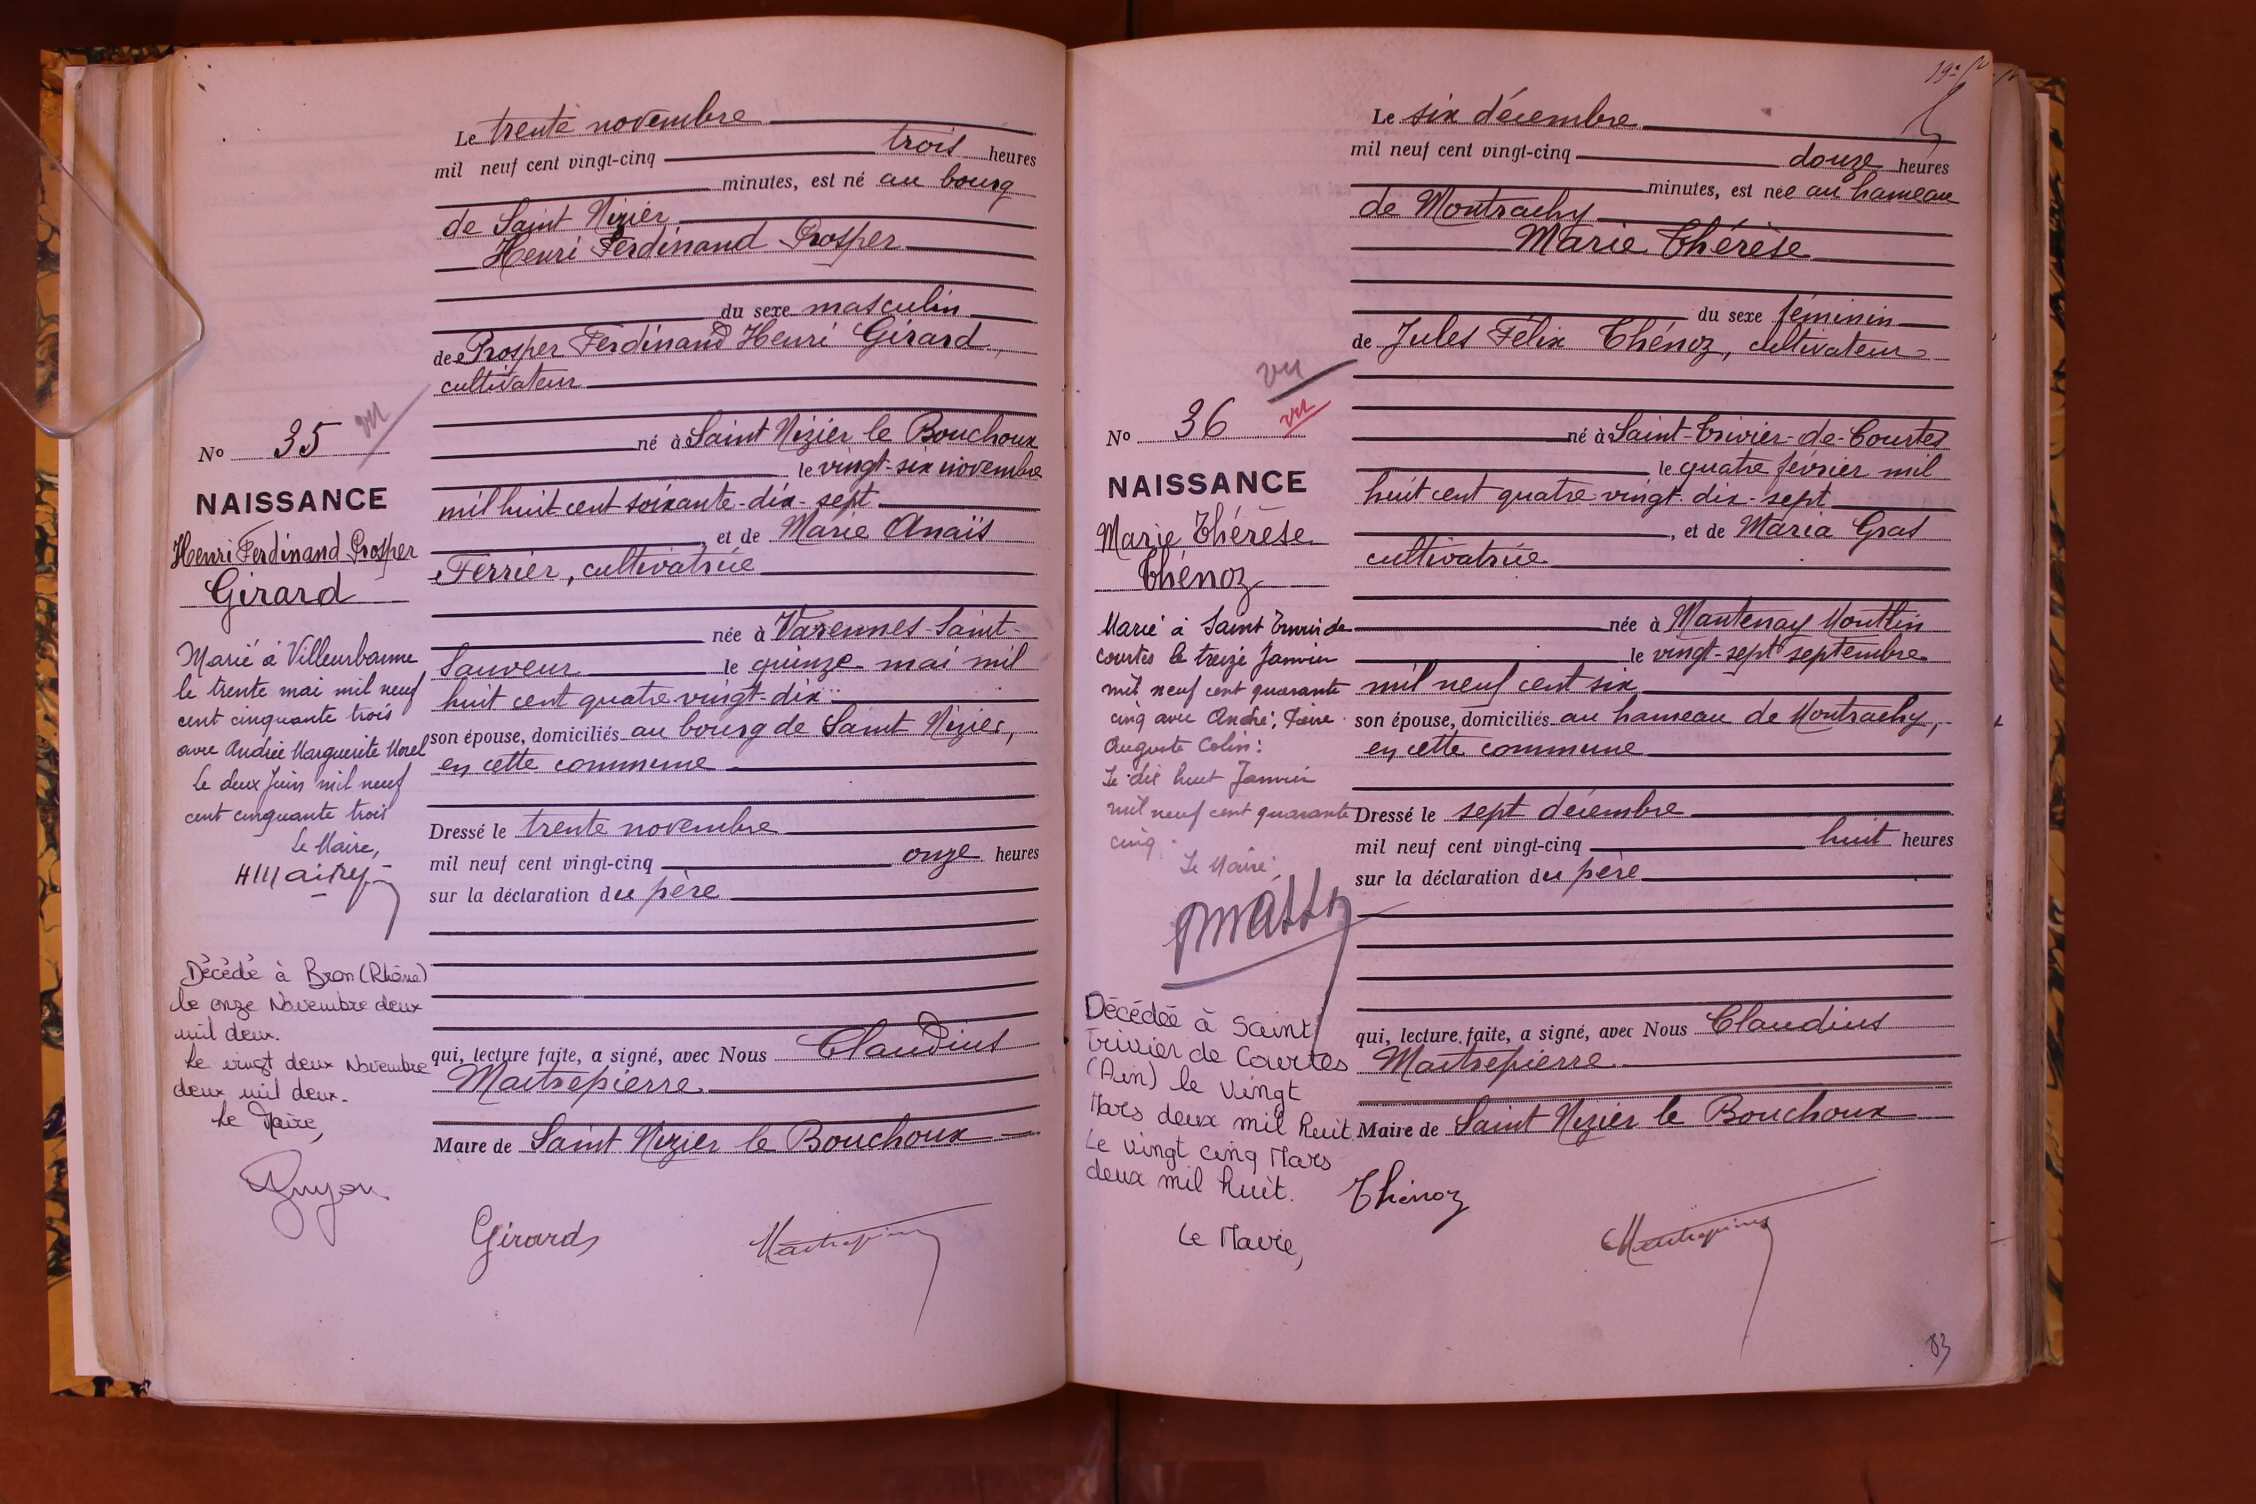 Le trente novembre
mil neuf cent vingt-cinq trois heures
minutes, est né au bourg
de Saint Nizier
Henri Ferdinand Prosper
du sexe masculin
de Prosper Ferdinand Henri Girard,
cultivateur
né à Saint Nizier le Bouchoux
le vingt-six novembre
mil huit cent soixante-dix-sept
, et de Marie Anaïs
Ferrier, cultivatrice
née à Varennes-Saint-
Sauveur le quinze mai mil
huit cent quatre-vingt-dix
son épouse, domiciliés au bourg de Saint Nizier,
en cette commune
Dressé le trente novembre
mil neuf cent vingt-cinq onze heures
sur la déclaration du père
qui, lecture faite, a signé, avec Nous Claudius
Maitrepierre
Maire de Saint Nizier le Bouchoux
Girard
Maitrepierre
vu
No 35
NAISSANCE
Henri Ferdinand Prosper
Girard
Marié à Villeurbanne
le trente mai mil neuf
cent cinquante trois
avec Andrée Marguerite Morel
Le deux Juin mil neuf
cent cinquante trois
Le Maire,
Décédé à Bron (Rhône)
le onze Novembre deux
mil deux.
Le vingt deux Novembre
deux mil deux.
Le Maire,
Le six décembre
mil neuf cent vingt-cinq douze heures
minutes, est née au hameau
de Montrachy
Marie Thérèse
du sexe féminin
de Jules Félix Thénoz, cultivateur
né à Saint-Trivier-de-Courtes
le quatre février mil
huit cent quatre vingt-dix-sept
, et de Maria Gras
cultivatrice
née à Mantenay Montlin
le vingt-sept septembre
mil neuf cent six
son épouse, domiciliés au hameau de Montrachy,
en cette commune
Dressé le sept décembre
mil neuf cent vingt-cinq huit heures
sur la déclaration du père
qui, lecture faite, a signé, avec Nous Claudius
Maitrepierre
Maire de Saint Nizier le Bouchoux
Thénoz
Maitrepierre
vu
vu
No 36
NAISSANCE
Marie Thérèse
Thénoz
Marié à Saint Trivier de
Courtes le treize Janvier
mil neuf cent quarante
cinq avec André,
Auguste Colin:
Le dix huit Janvier
mil neuf cent quarante
cinq.
Le Maire:
Décédée à Saint
Trivier de Courtes
(Ain) le vingt
Mars deux mil huit.
Le vingt cinq Mars
deux mil huit.
Le Maire,
83